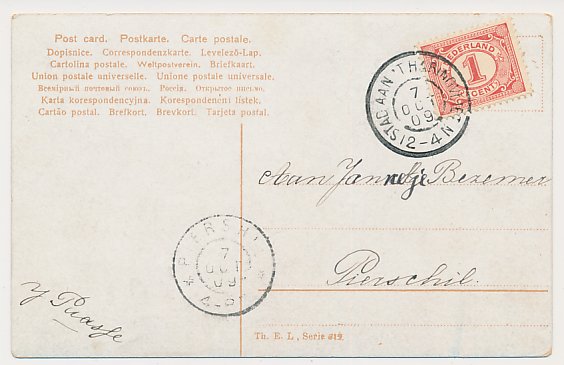 Post card. Postkarte. Carte postale.
Dopisnice. Correspondenzkarte. Levelező-Lap.
Cartolina postale. Weltpostverein. Briefkaart.
Union postale universelle. Unione postale universale.
Всемірный почтовый союзъ. Россія. Открытое письмо.
Karta korespondencyjna. Korespondenčni listek.
Cartão postal. Brefkort. Brevkort. Tarjeta postal.
NEDERLAND
1
CENT
STAD AAN 'T HARINGVLIET
7
OCT
09
12-4N
Aan Jannetje Bezemer
Pierschil.
PIERSHIL
7
OCT
09
4-
J Paasse
Th. E. L., Serie 619.